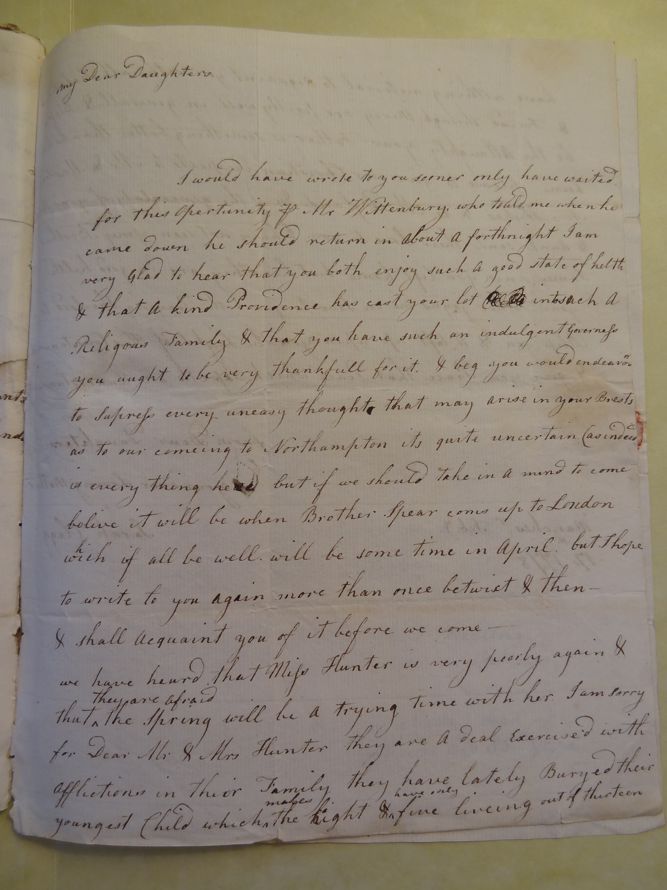 My Dear Daughters
I would have wrote to you sooner only have waited
for this Opertunity P Mr Wittenbury. who tould me when he
came down he should return in about a forthnight I am
very Glad to hear that you both enjoy such a good state of helth
& that a kind Providence has cast your lot into such A
Religous Family & that you have such an indulgent Governess
you ought to be very thankfull for it. & beg you would endeavor
to Supress every uneasy thought that may arise in your Brests
as to our comeing to Northampton its quite uncertain (as indeed
is every thing here) but if we should take in a mind to come
belive it will be when Brother Spear coms up to London
wich if all be well will be some time in April. but I hope
to write to you again more than once betwixt & then—
& shall Acquaint you of it before we come—
we have heard that Miss Hunter is very poorly again &
they are afraid
that ^ the Spring will be a trying time with her I am sorry
for Dear Mr & Mrs Hunter they are A deal Exercised with
Afflictions in thier Family they have lately Buryed their
makes have only
youngest Child which ^ the Eight & ^ five liveing out of thirteen